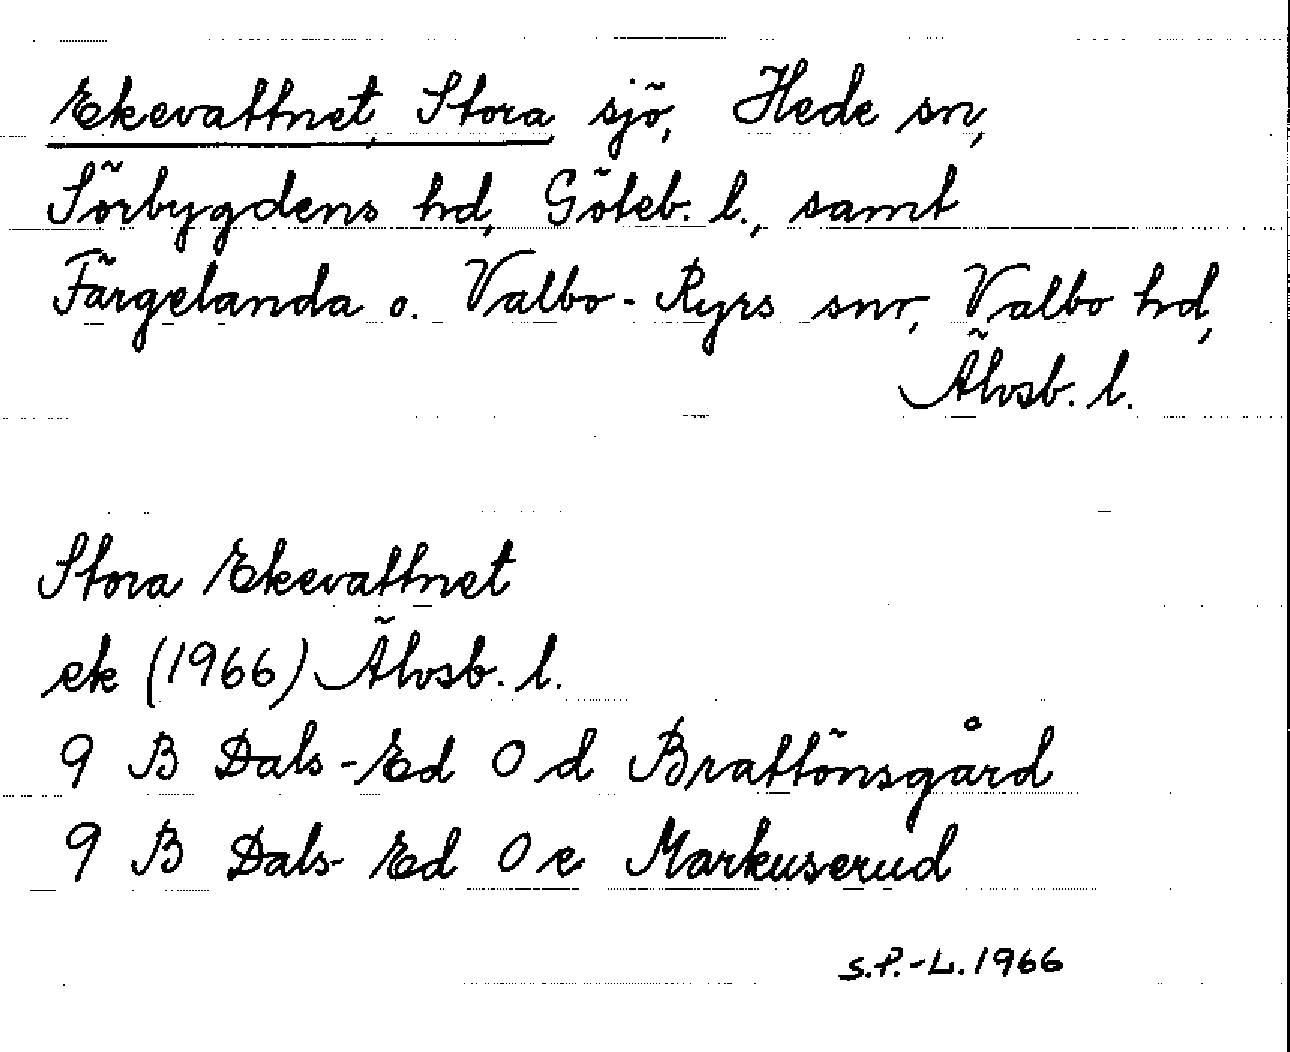 Ekevattnet, Stora, sjö, Hede sn,
Sörbygdens hd, Göteb. l., samt
Färgelanda o. Valbo-Ryrs snr, Valbo hd,
Älvsb. l.
Stora Ekevattnet
ek (1966) Älvsb. l.
9 B Dals-Ed 0 d Brattönsgård
9 B Dals-Ed 0 e Markuserud
S.P.-L. 1966